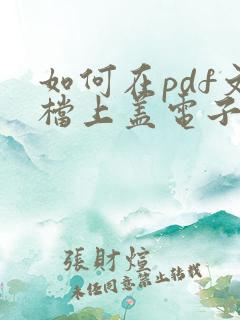 如何在pdf文
檔上蓋電子
張財煊
未任同意禁止转载